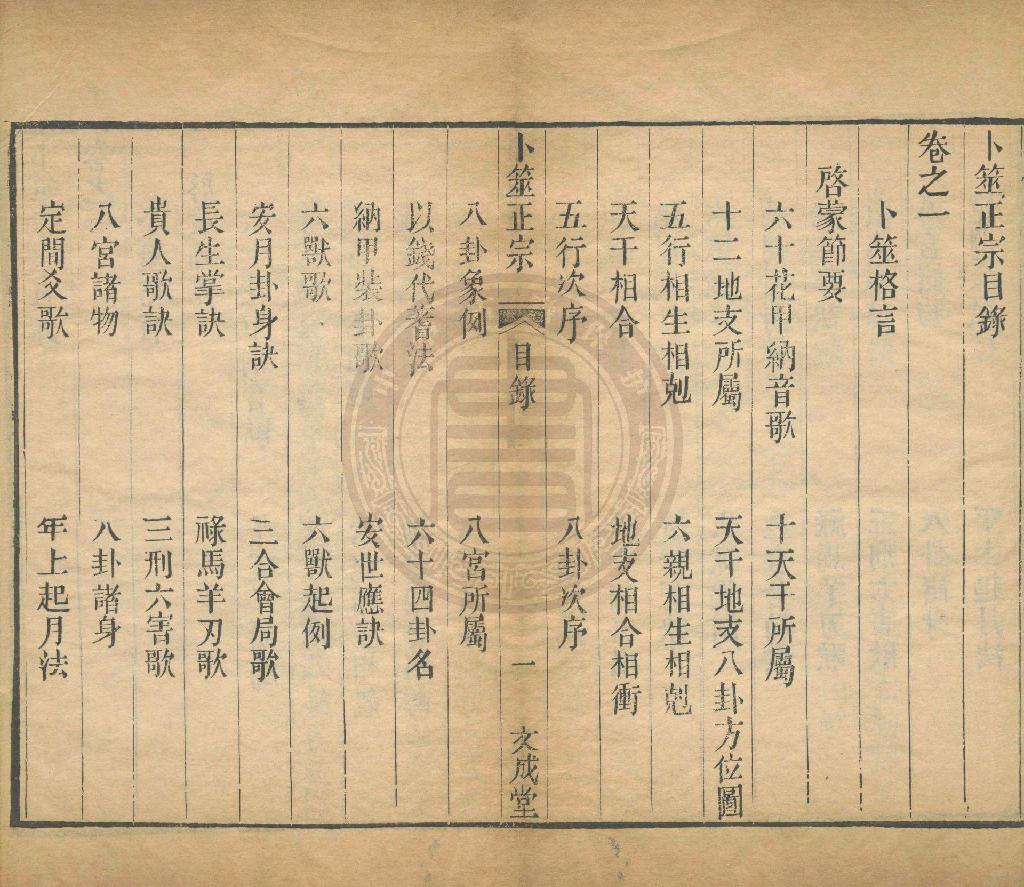 卜筮正宗目錄
卷之一
卜筮格言
啓蒙節要
六十花甲納音歌 十天干所屬
十二地支所屬 天干地支八卦方位圖
五行相生相剋 六親相生相剋
天干相合 地支相合相衝
五行次序 八卦次序
卜筮正宗 目錄 一 文成堂
八卦象例 八宮所屬
以錢代蓍法 六十四卦名
納甲裝卦歌 安世應訣
六獸歌 六獸起例
安月卦身訣 三合會局歌
長生掌訣 祿馬羊刃歌
貴人歌訣 三刑六害歌
八宮諸物 八卦諸身
定間爻歌 年上起月法